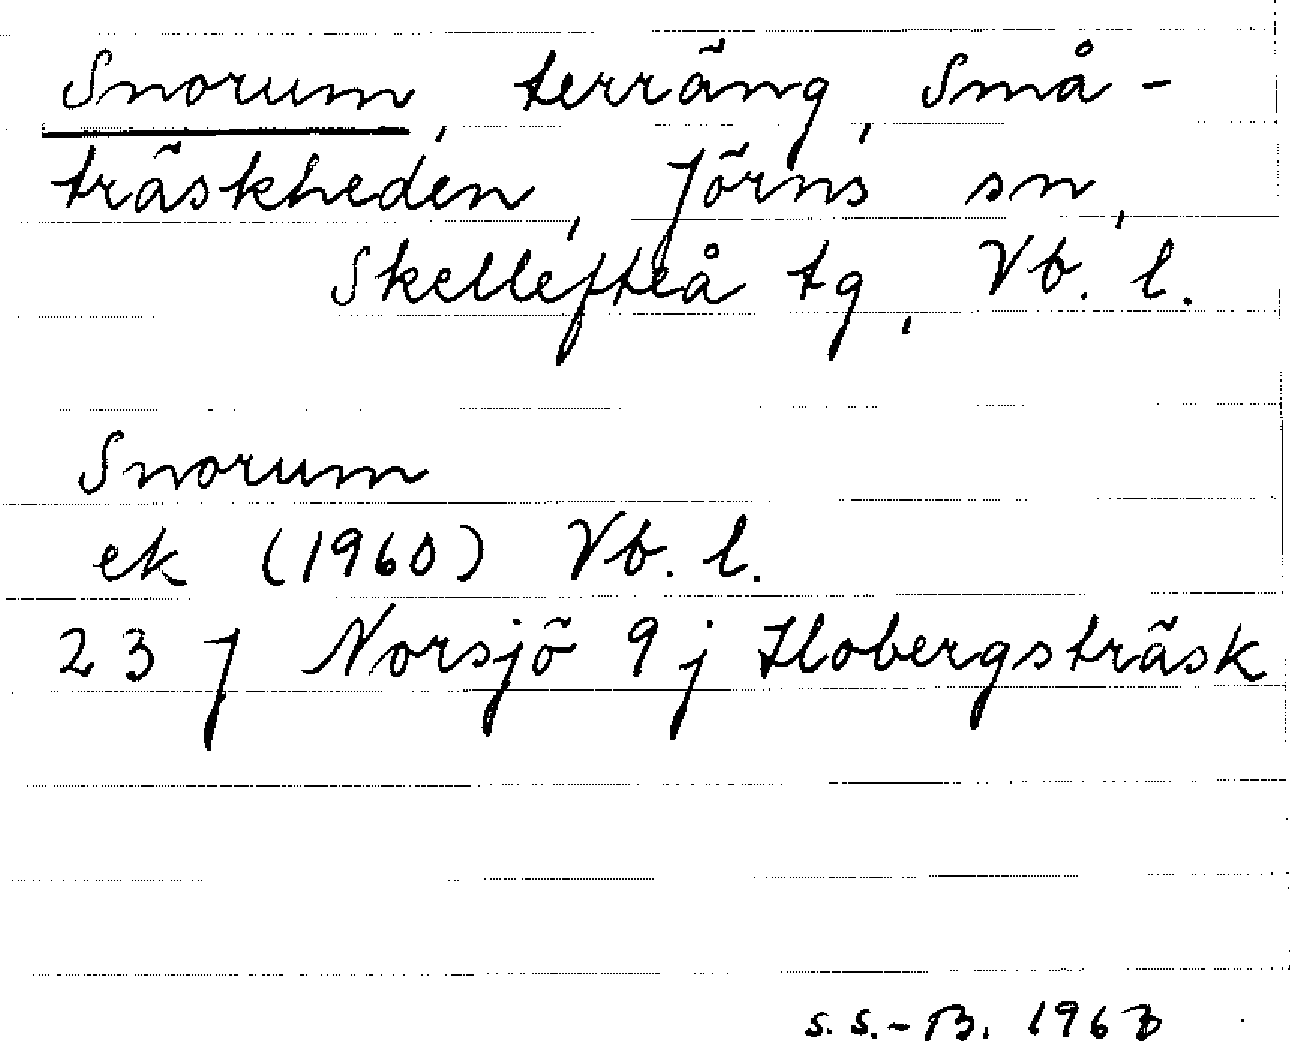 Snorum, terräng, Små-
träskheden, Jörns sn,
Skellefteå tg, Vb. l.
Snorum
ek (1960) Vb. l.
23 J Norsjö 9 j Holobergsträsk
S. S.-B. 196